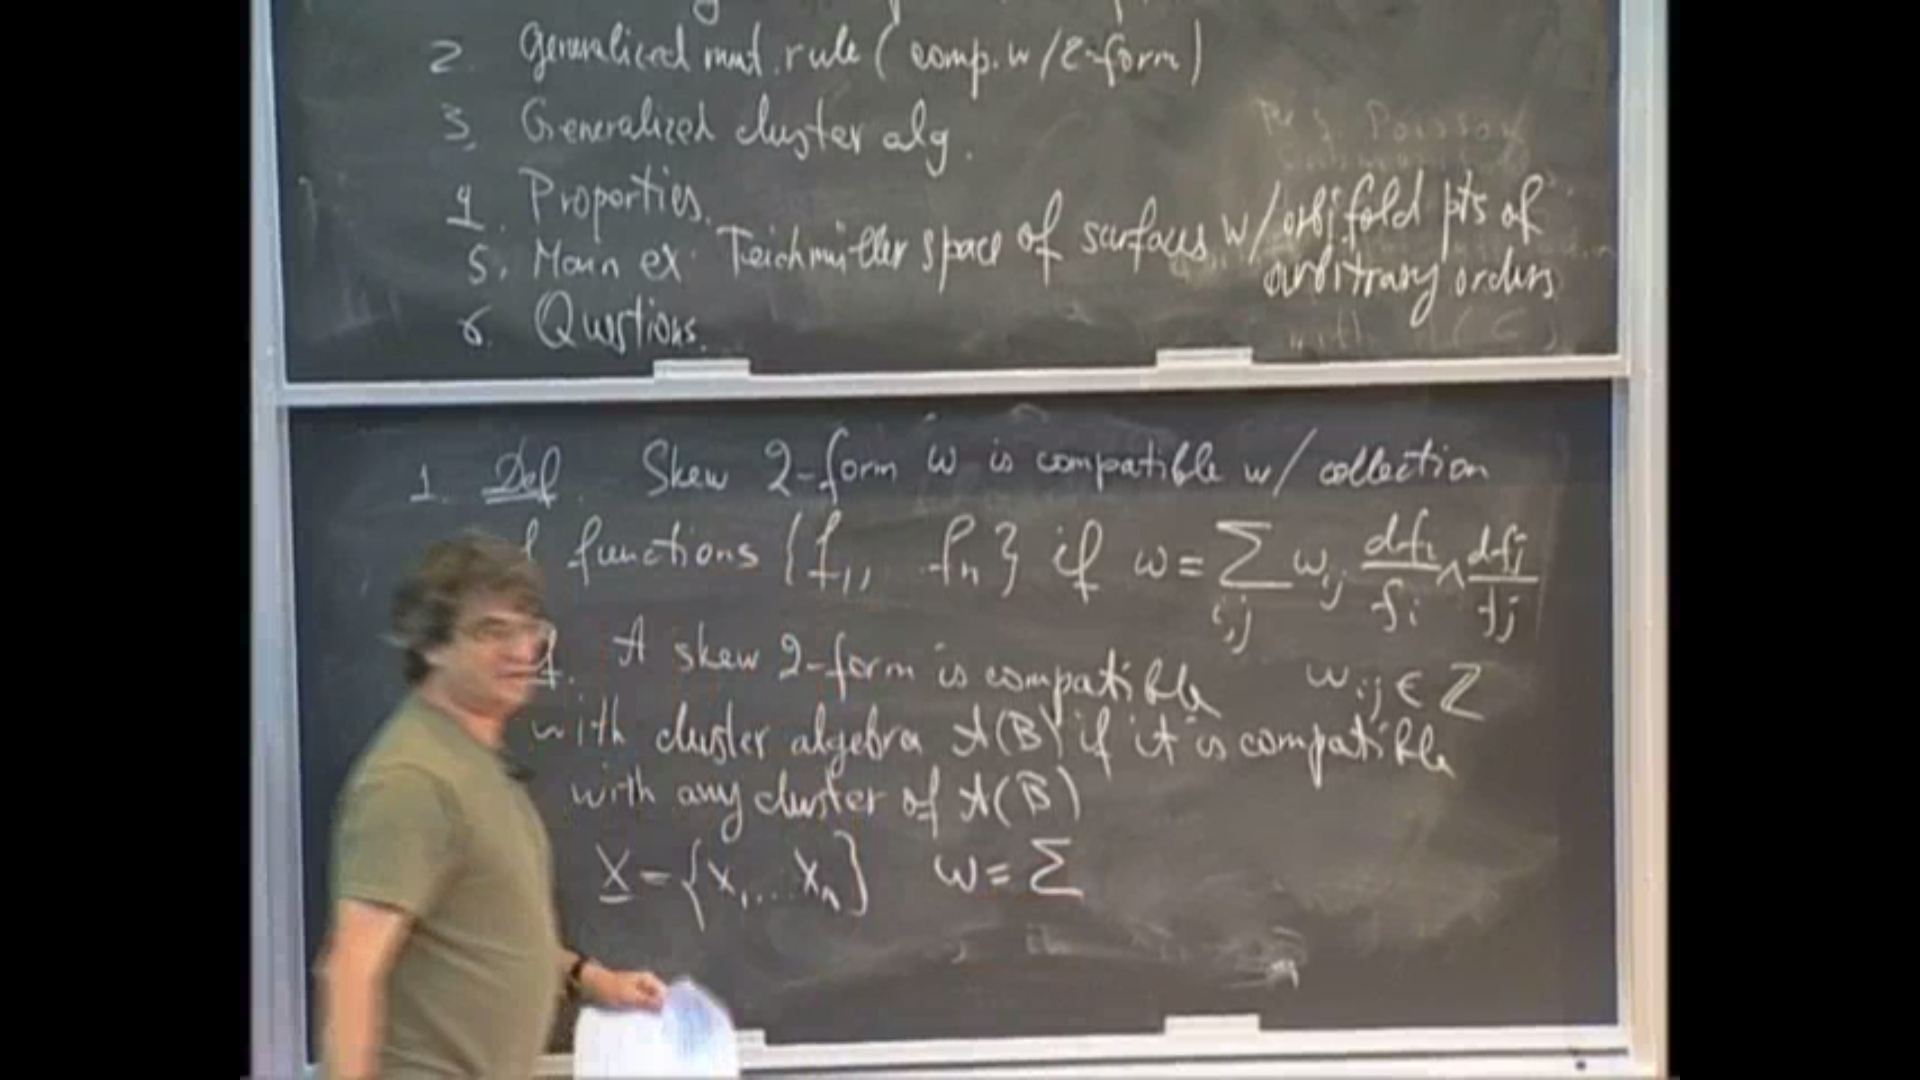 2. Generalized mut. rule (comp. w/2-form)
3. Generalized cluster alg.
4. Properties.
5. Main ex. Teichmüller space of surfaces w/orbifold pts of
arbitrary orders
6. Questions.
1. Def. Skew 2-form ω is compatible w/ collection
functions {f₁,, fₙ} if ω = ∑_{i,j} ω_{ij} df_i/f_i ∧ df_j/f_j
A skew 2-form is compatible ω_{ij} ∈ ℤ
with cluster algebra A(B) if it is compatible
with any cluster of A(B)
X = {x₁...xₙ} ω = ∑